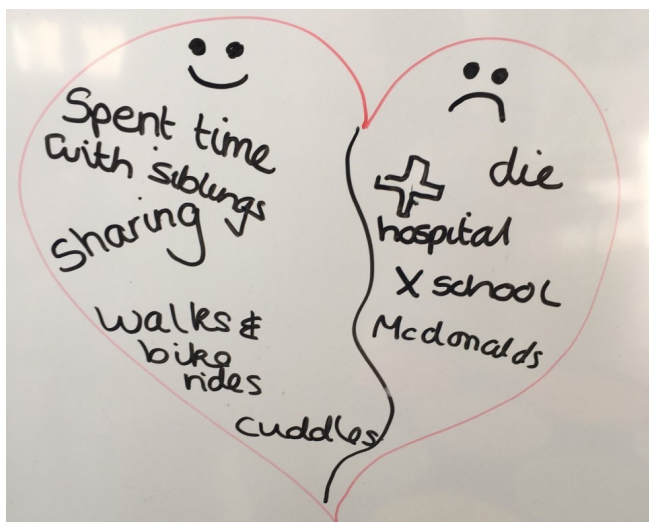 Spent time
with siblings
sharing
walks &
bike
rides
cuddles
die
hospital
X school
Mcdonalds